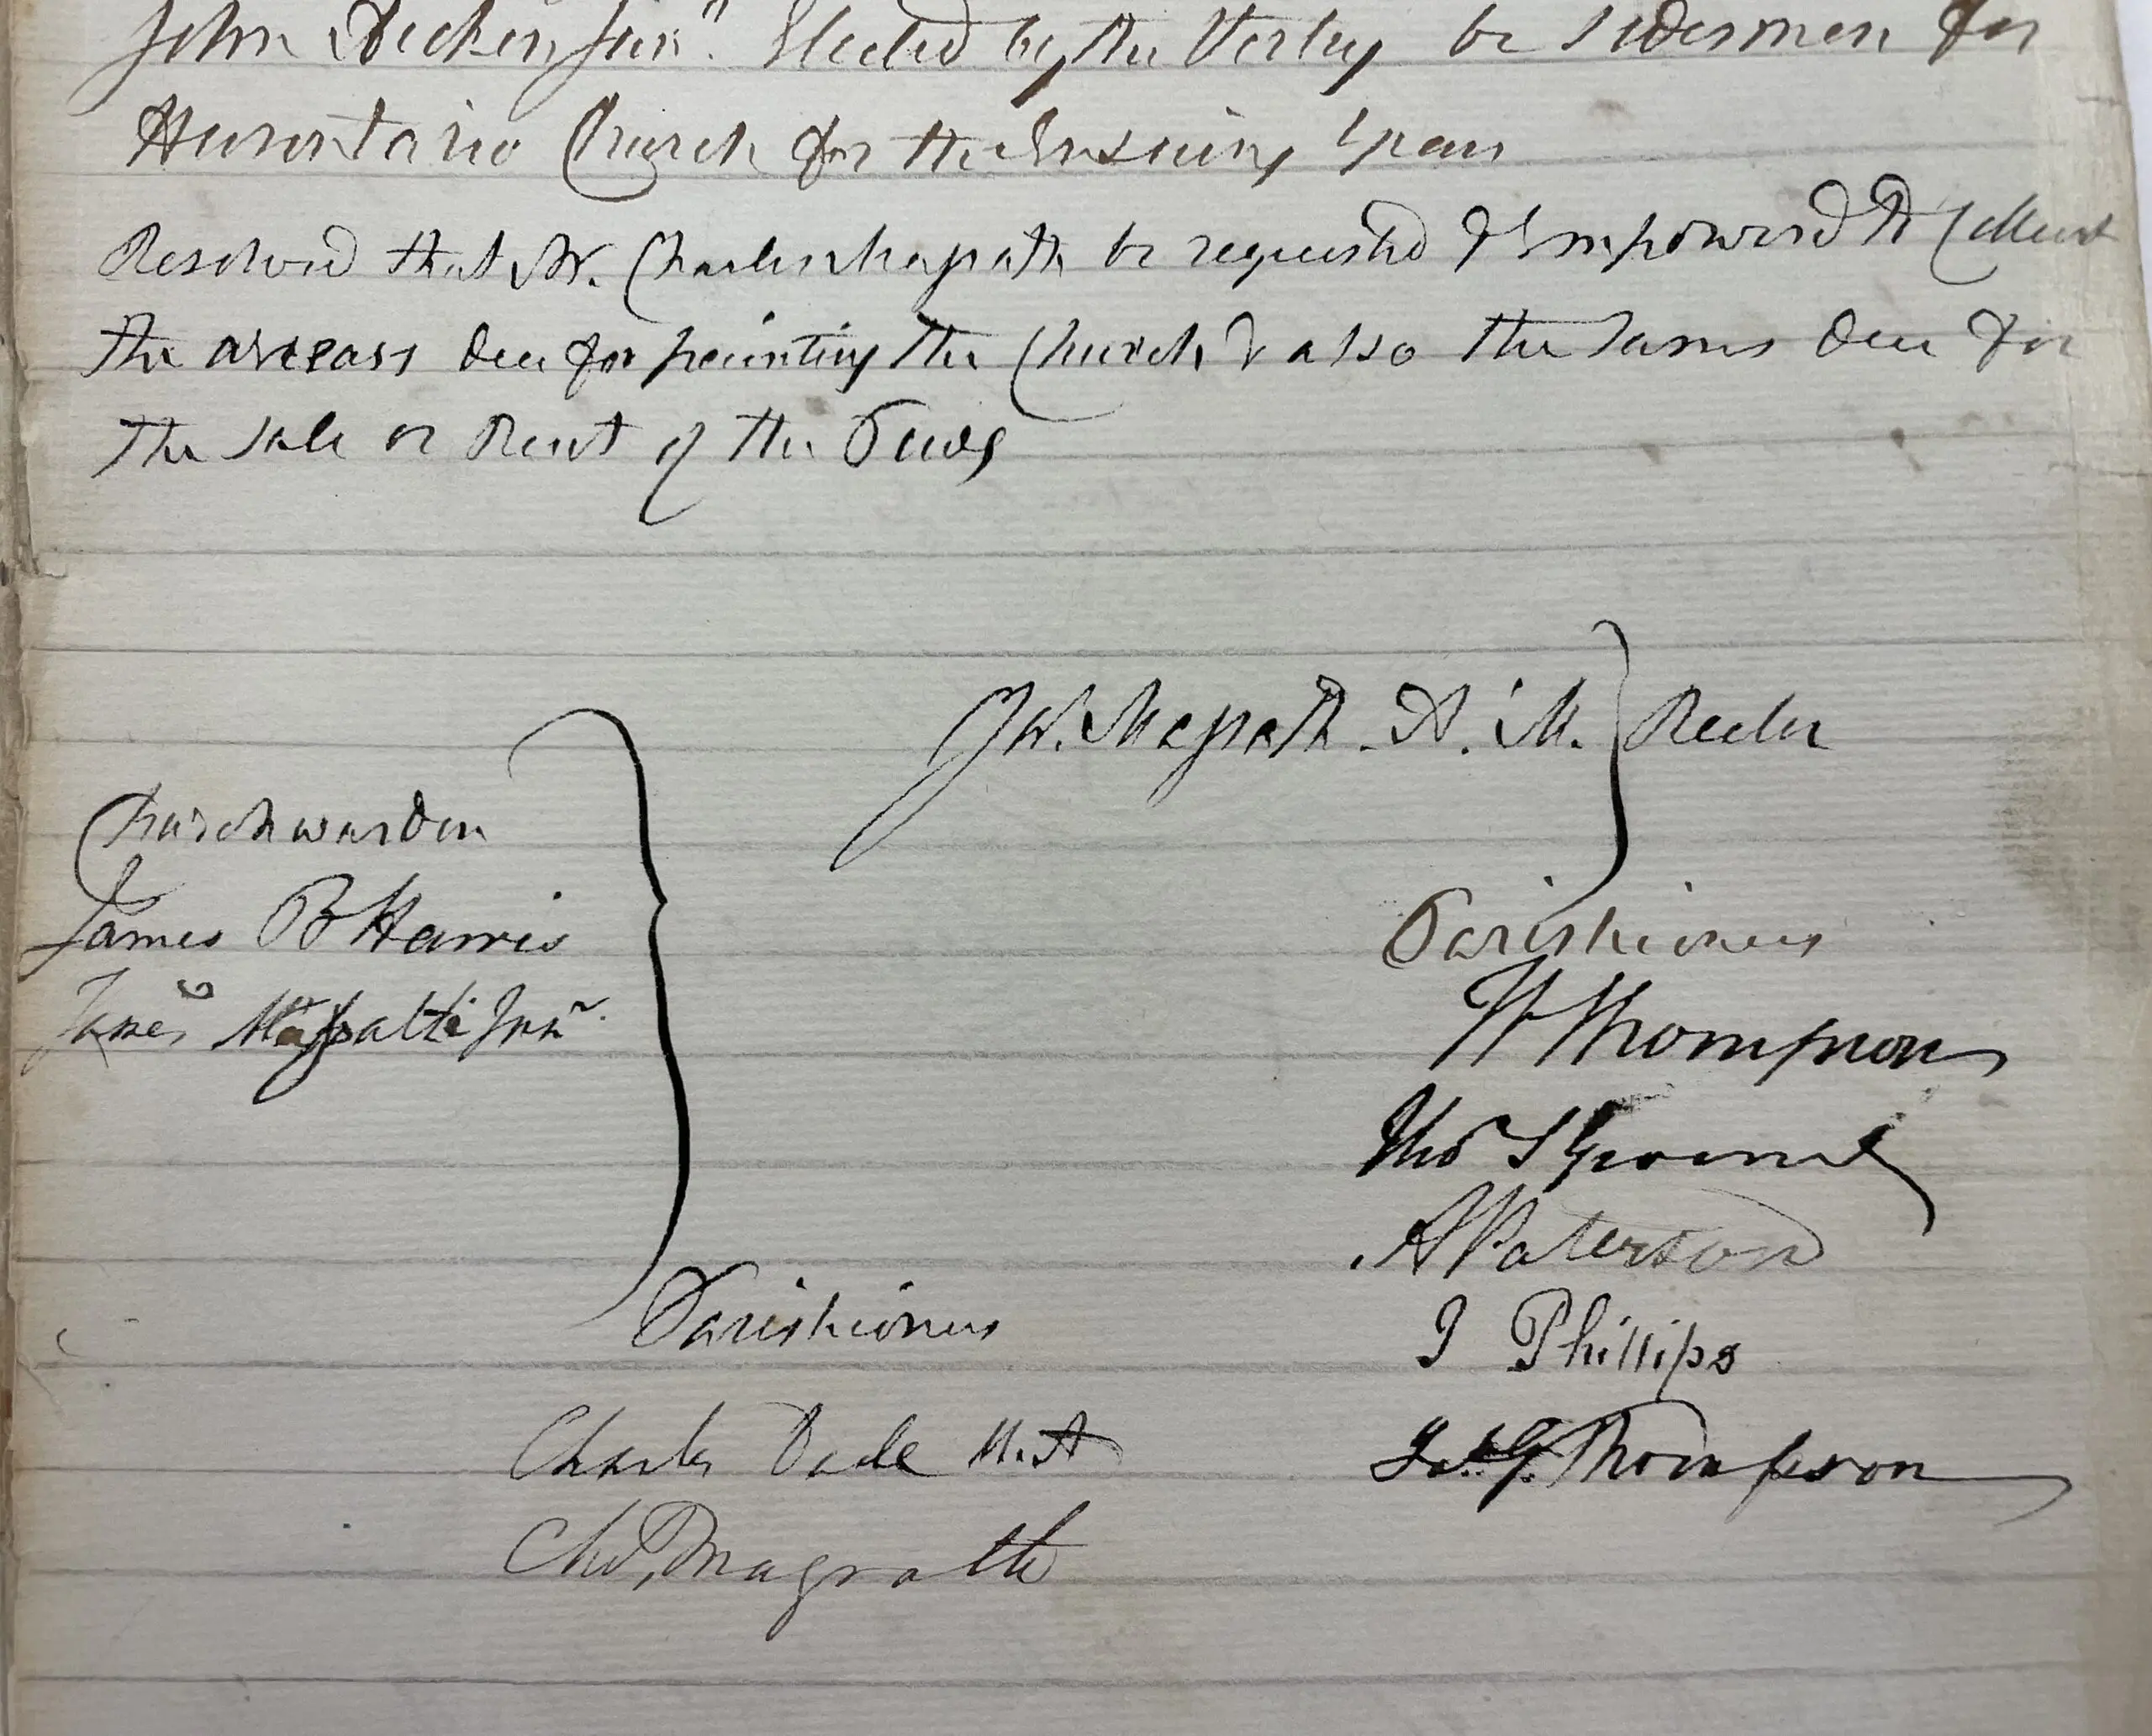 John Dickinson Junr. Elected by the Vestry be sidesmen for
Hurontario Church for the Ensuing Year
Resolved that Mr. Charles Magrath be requested & Empowered to Collect
the arrears due for painting the Church & also the sums due for
the sale or Rent of the Pews
Jas. Magrath A.M. } Rector
Churchwarden
James B Harris
James Magrath Junr.
Parishioners
W Thompson
Thos
A Paterson
J Phillips
Thompson
Parishioners
Charles Dade M.A
Chs. Magrath